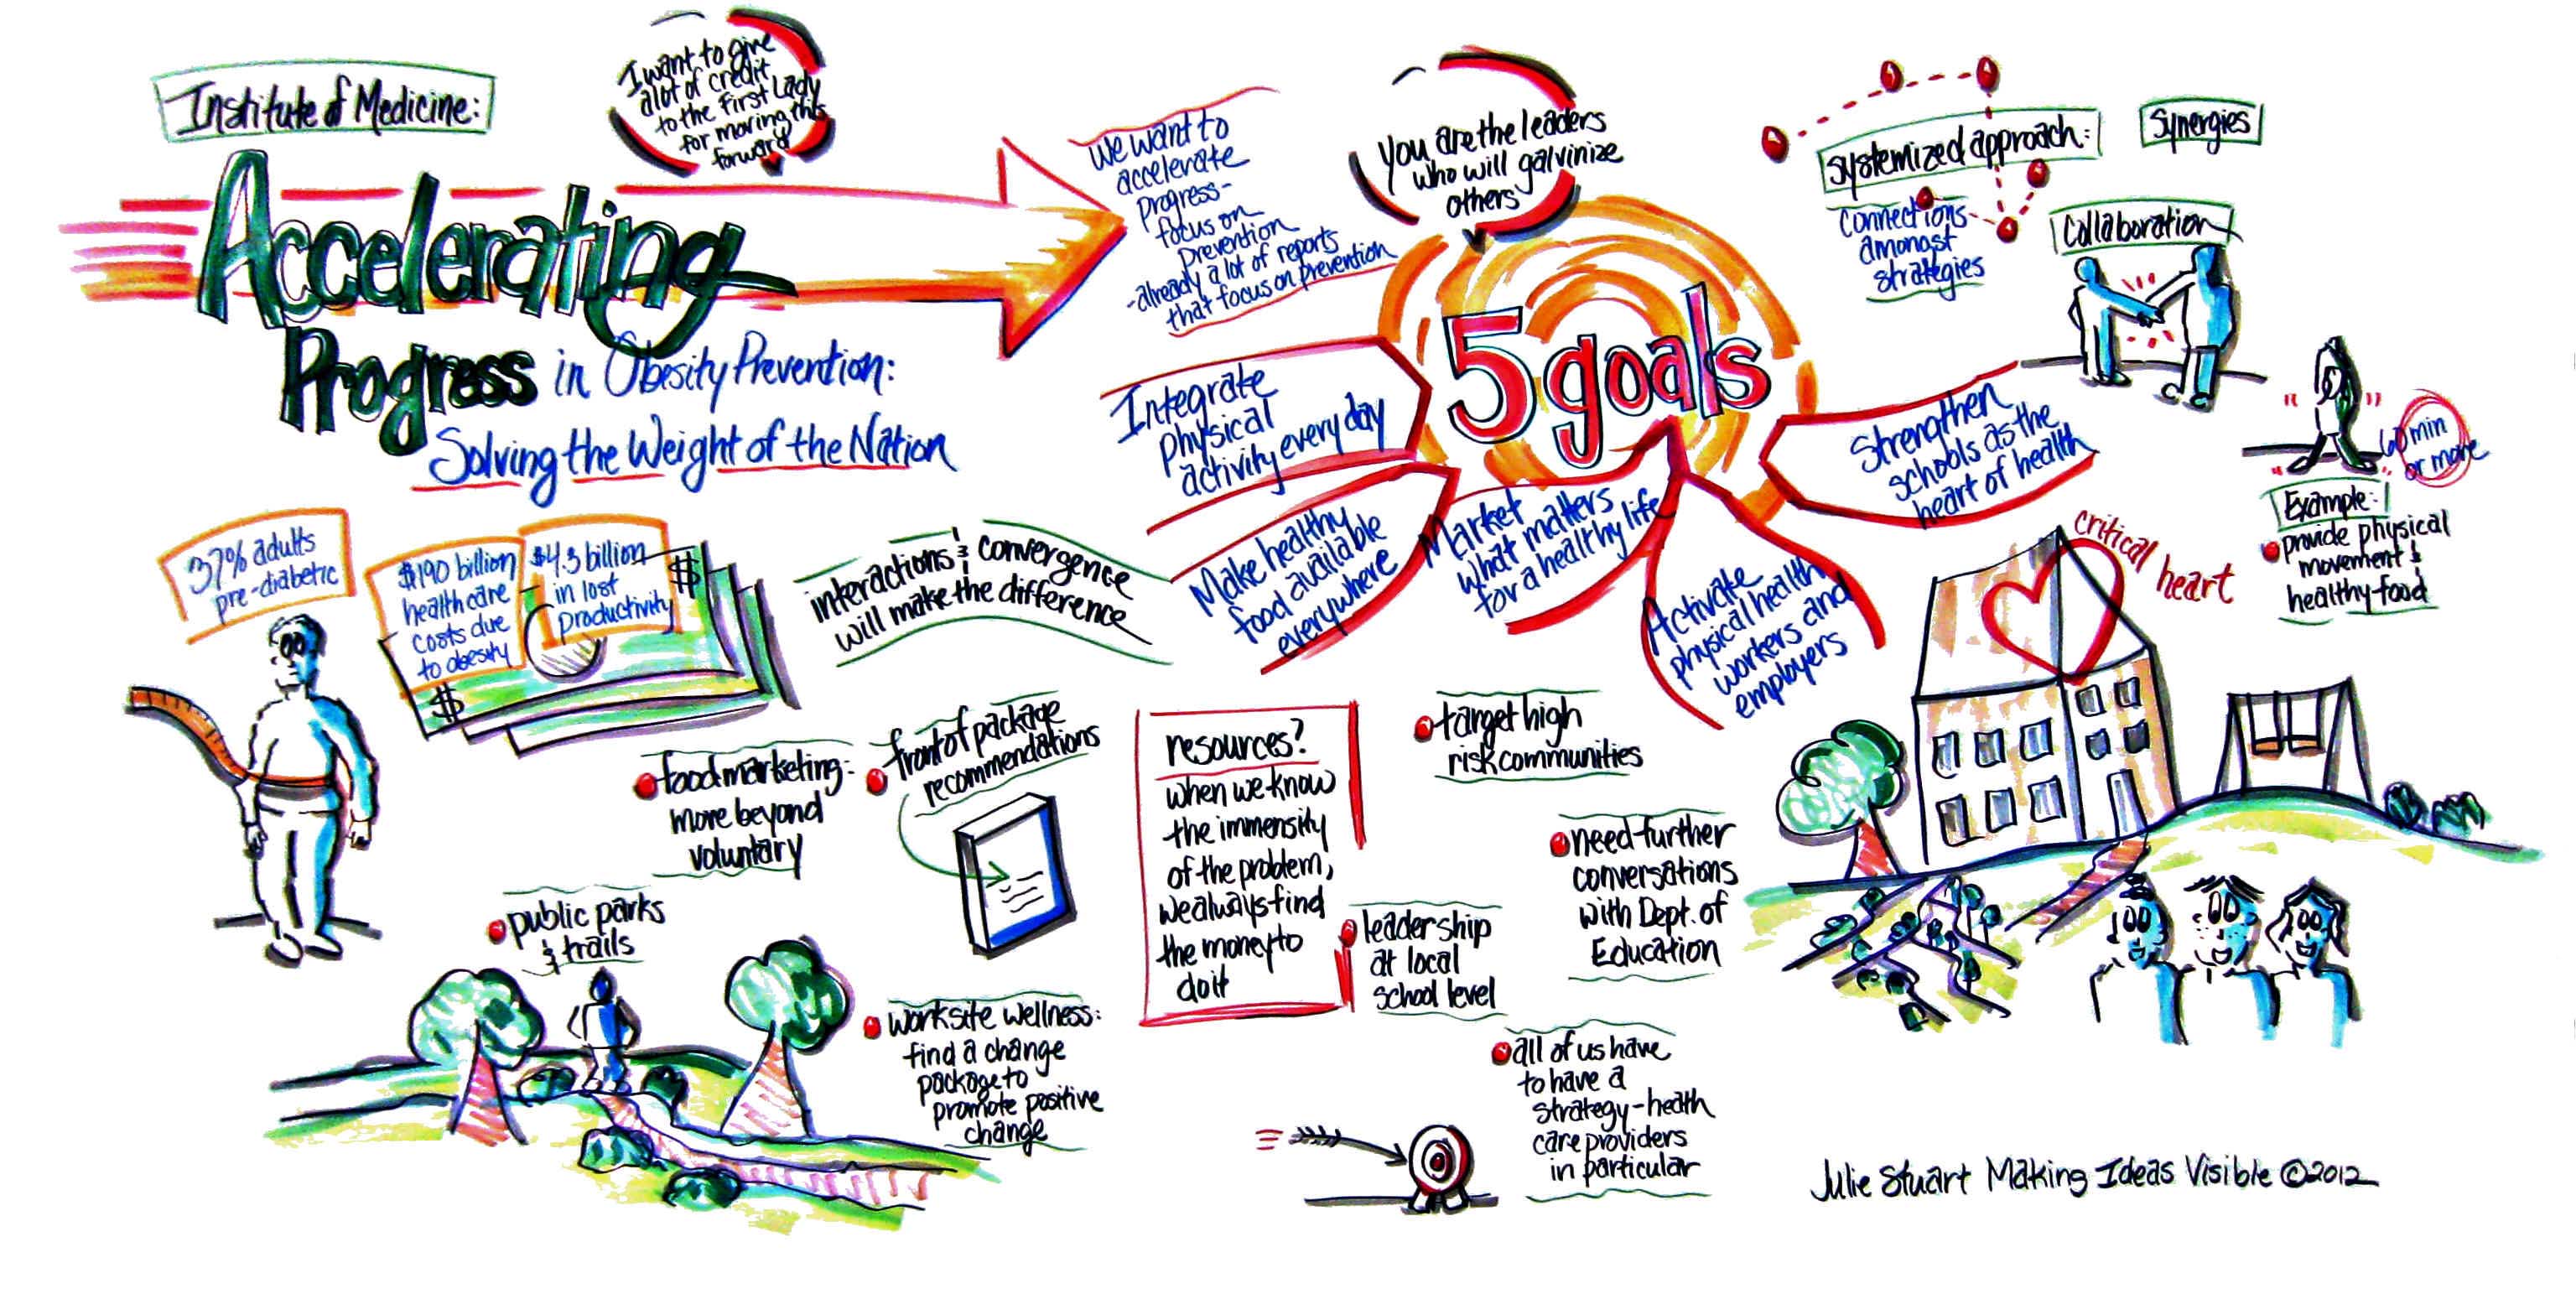 Institute of Medicine:
I want to give
a lot of credit
to the First Lady
for moving this
forward
Accelerating
Progress in Obesity Prevention:
Solving the Weight of the Nation
We want to
accelerate
progress-
focus on
prevention
-already a lot of reports
that focus on prevention
You are the leaders
who will galvinize
others
5 goals
Integrate
physical
activity every day
Make healthy
food available
everywhere
Market
what matters
for a healthy life
Activate
physical health
workers and
employers
Strengthen
schools as the
heart of health
systemized approach:
connections
amongst
strategies
Synergies
Collaboration
60 min
or more
Example:
provide physical
movement &
healthy food
critical heart
37% adults
pre-diabetic
$190 billion
healthcare
costs due
to obesity
$4.3 billion
in lost
productivity
$
$
interactions & convergence
will make the difference
food marketing:
more beyond
voluntary
front of package
recommendations
public parks
& trails
worksite wellness:
find a change
package to
promote positive
change
resources?
when we know
the immensity
of the problem,
we always find
the money to
do it
target high
risk communities
need further
conversations
with Dept. of
Education
leadership
at local
school level
all of us have
to have a
strategy-heath
care providers
in particular
Julie Stuart Making Ideas Visible ©2012